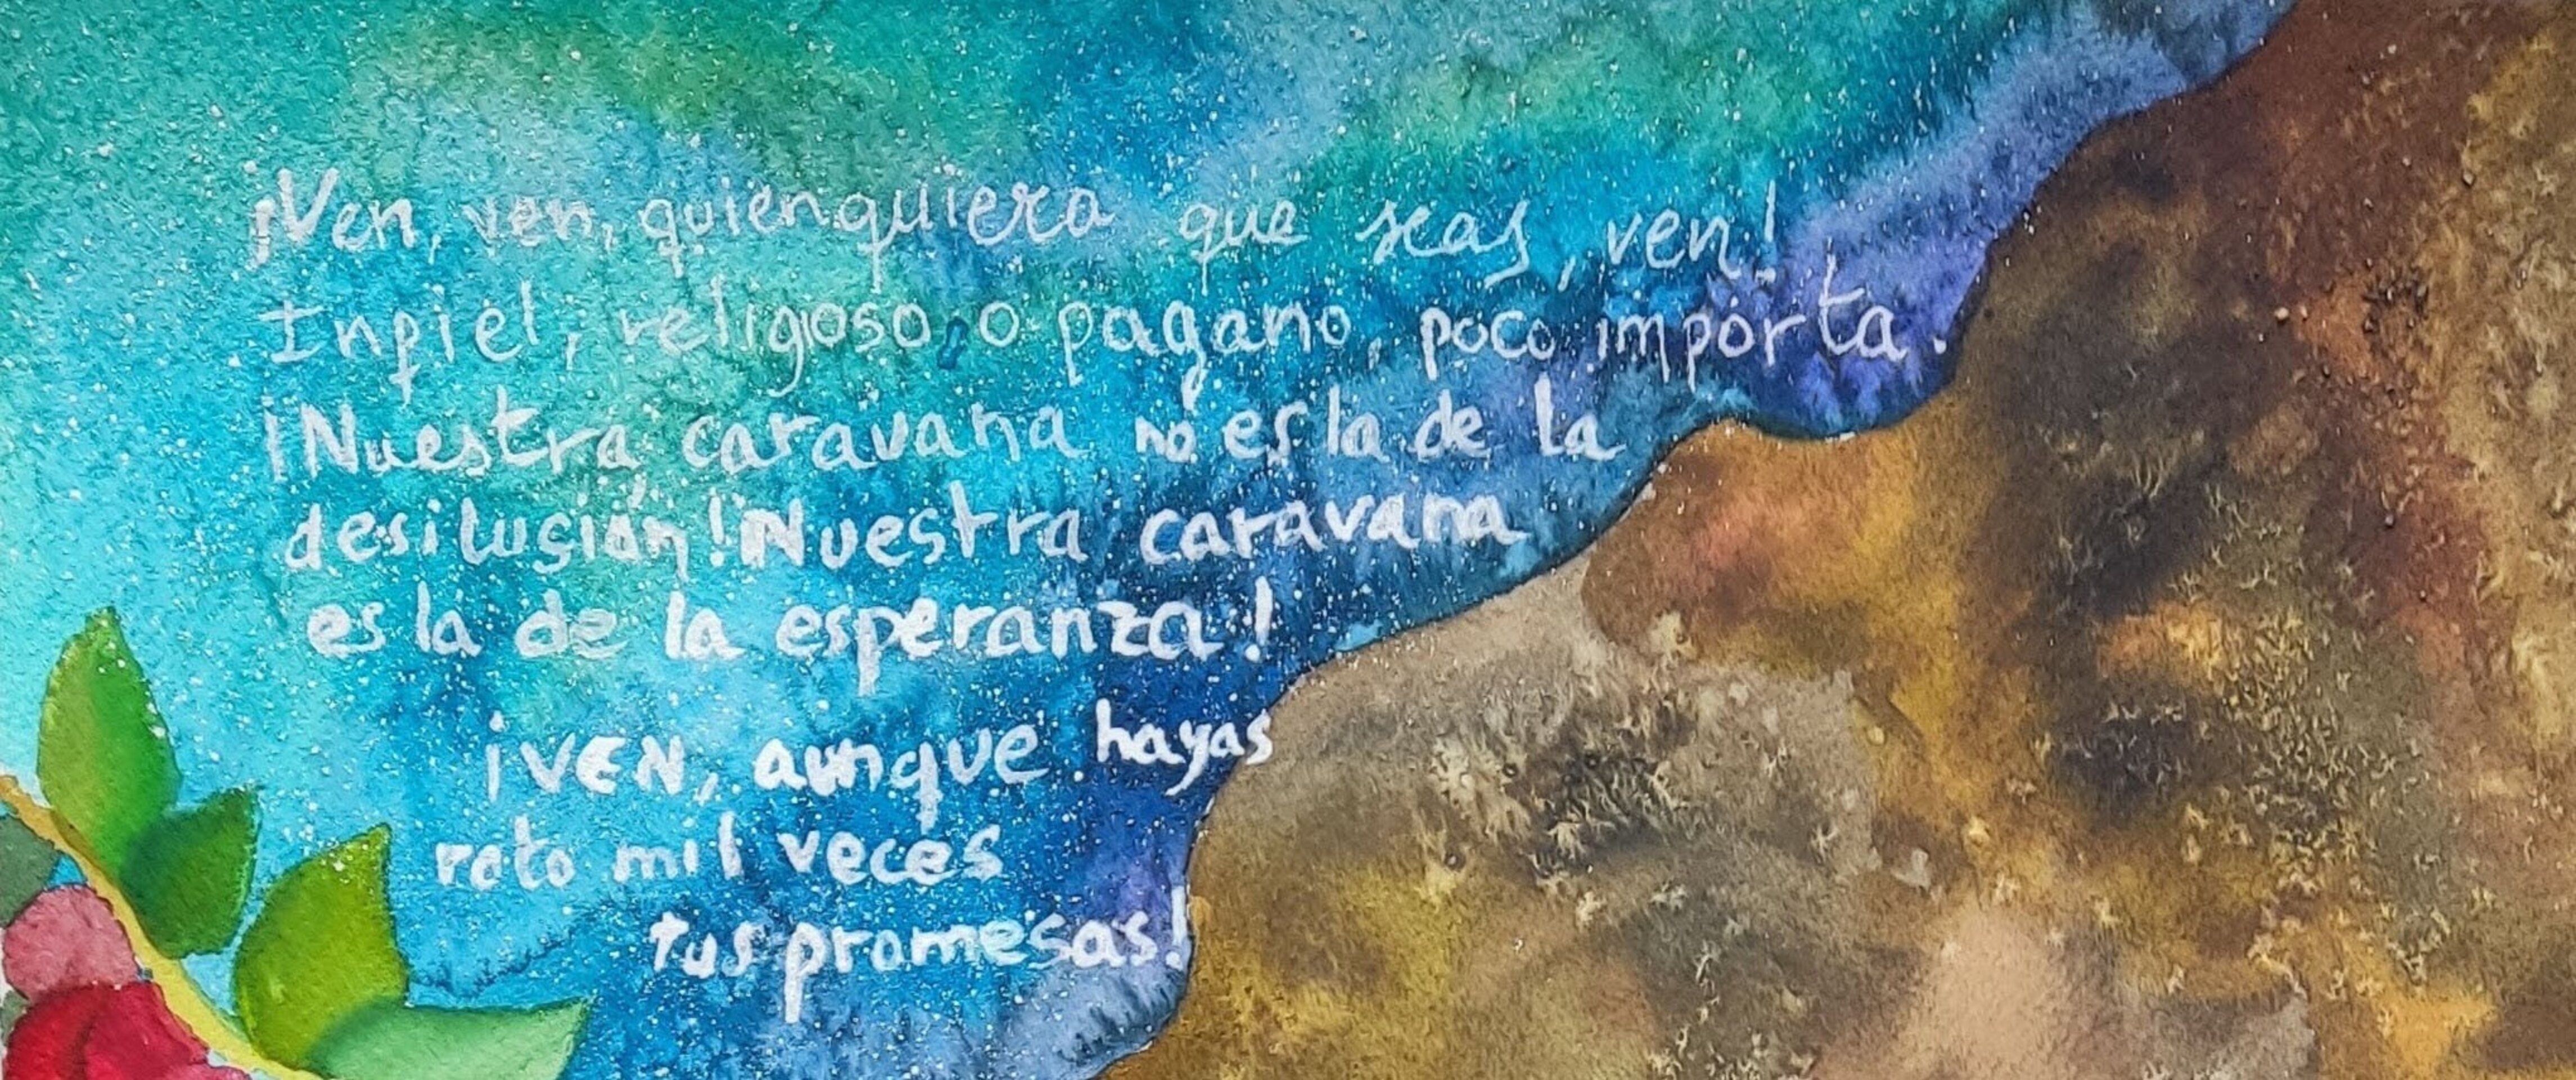 ¡Ven, ven, quienquiera que seas, ven!
Infiel, religioso, o pagano, poco importa.
¡Nuestra caravana no es la de la
desilusión! Nuestra caravana
es la de la esperanza!
¡VEN, aunque hayas
roto mil veces
tus promesas!